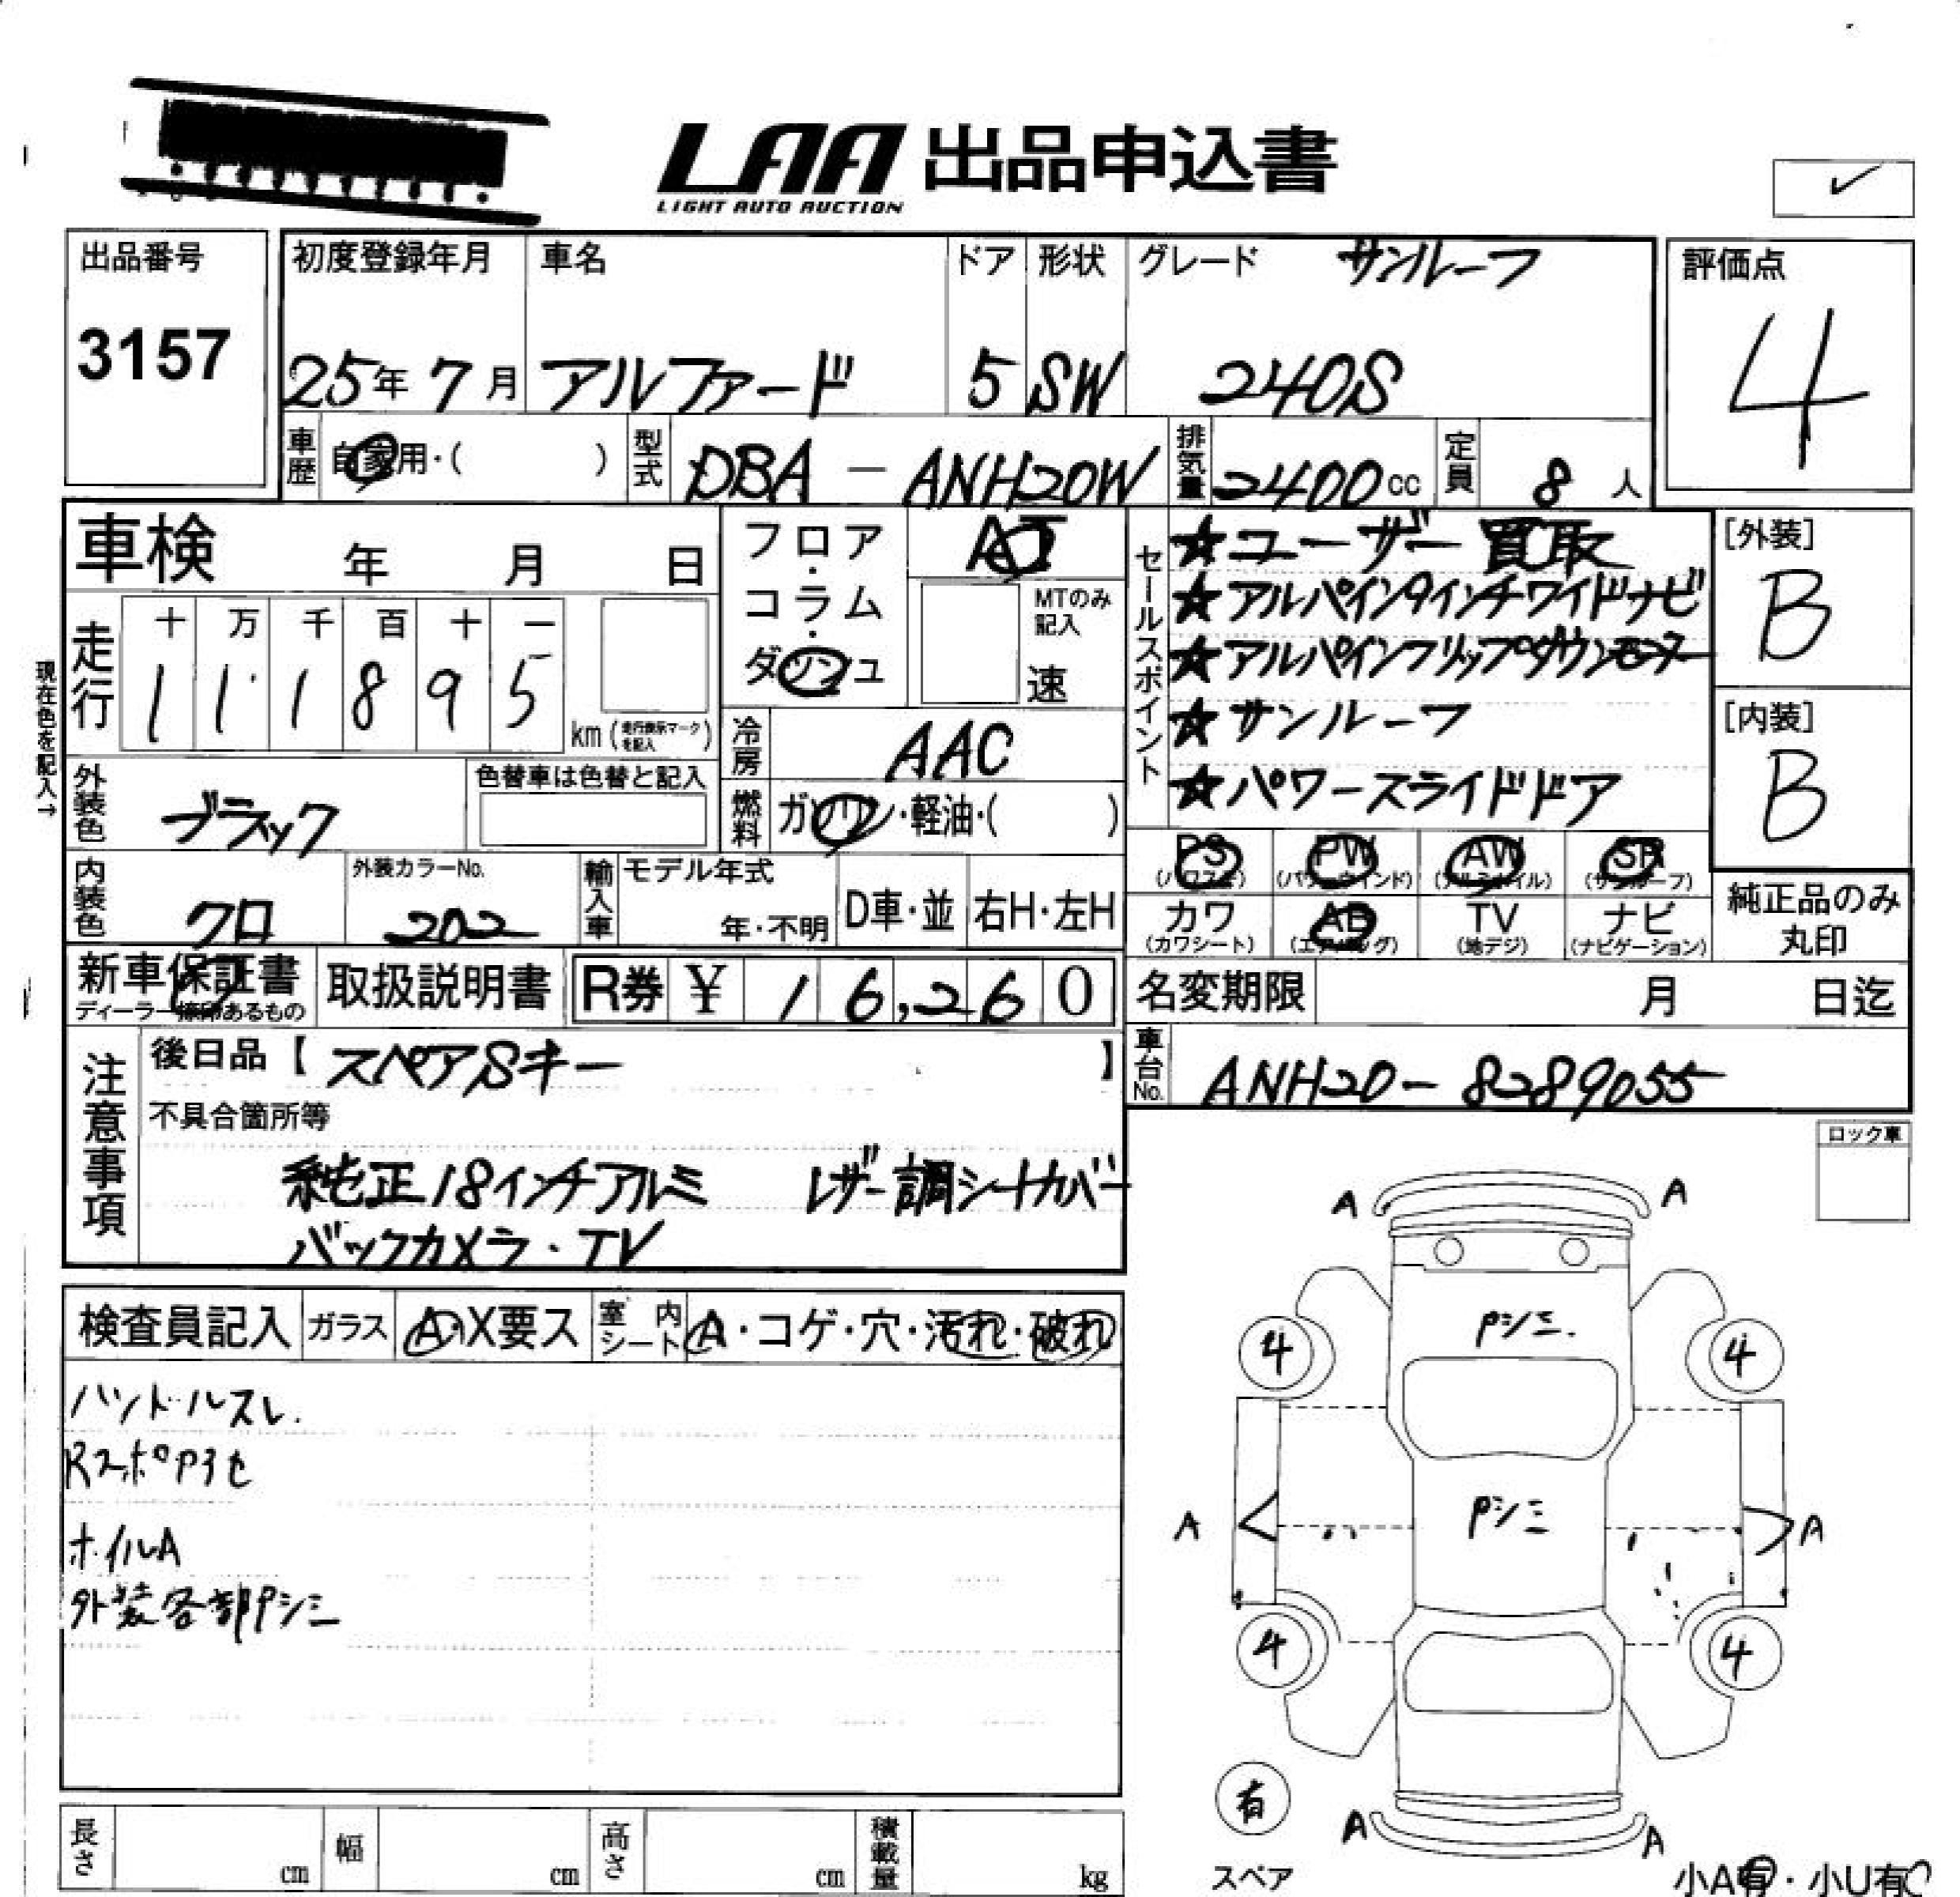 LAA 出品申込書
LIGHT AUTO AUCTION
出品番号
3157
初度登録年月
25年 7月
車名
アルファード
ドア
5
形状
SW
グレード サンルーフ
240S
評価点
4
車歴 自家用・( )
型式 DBA - ANH20W
排気量 2400cc
定員 8人
車検 年 月 日
フロア・コラム・ダッシュ
AT
MTのみ記入
速
セールスポイント
☆ユーザー買取
☆アルパイン9インチワイドナビ
☆アルパインフリップダウンモニター
☆サンルーフ
☆パワースライドドア
[外装]
B
[内装]
B
現在色を記入→
走行
十 万 千 百 十 一
1 1 1 8 9 5
km (走行表示マークを記入)
冷房 AAC
外装色 ブラック
色替車は色替と記入
燃料 ガソリン・軽油・( )
内装色 クロ
外装カラーNo.
202
輸入車
モデル年式
年・不明
D車・並
右H・左H
PS (パワステ)
PW (パワーウインド)
AW (アルミホイル)
SR (サンルーフ)
カワ (カワシート)
AB (エアバッグ)
TV (地デジ)
ナビ (ナビゲーション)
純正品のみ丸印
新車保証書
ディーラー捺印あるもの
取扱説明書
R券 ¥ 16,260
名変期限 月 日迄
車台No. ANH20-8289055
注意事項
後日品【 スペアSキー 】
不具合箇所等
純正18インチアルミ レザー調シートカバー
バックカメラ・TV
ロック車
検査員記入 ガラス A・X要ス 室内シート A・コゲ・穴・汚れ・破れ
ハンドルスレ.
RスポPヨセ
ホイルA
外装各部Pシミ
A A
Pシミ.
4 4
Pシミ
A A
4 4
有
スペア
A A
小A有・小U有
長さ cm
幅 cm
高さ cm
積載量 kg